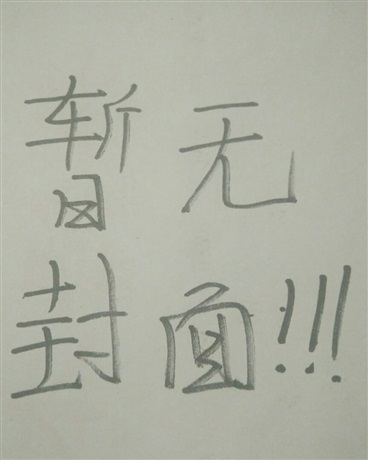 暂无
封面!!!